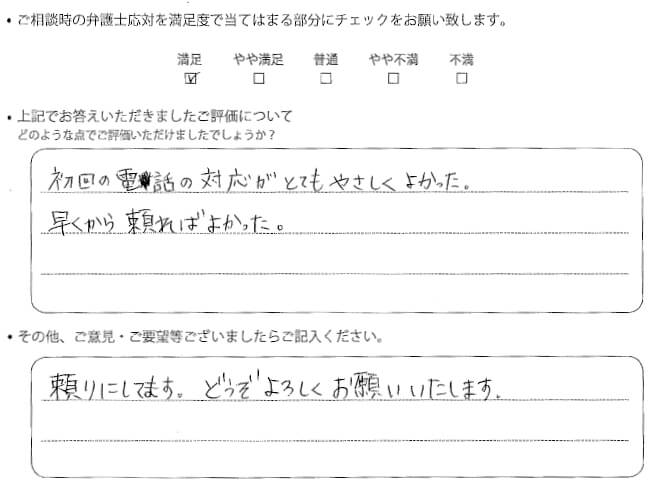 ・ご相談時の弁護士応対を満足度で当てはまる部分にチェックをお願い致します。
満足 やや満足 普通 やや不満 不満
☑ □ □ □ □
・上記でお答えいただきましたご評価について
どのような点でご評価いただけましたでしょうか？
初回の電話の対応がとてもやさしくよかった。
早くから頼ればよかった。
・その他、ご意見・ご要望等ございましたらご記入ください。
頼りにしてます。どうぞよろしくお願いいたします。